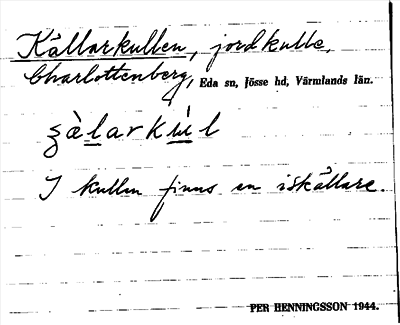 Källarkullen, jordkulle,
Charlottenberg, Eda sn, Jösse hd, Värmlands län.
I kullen finns en iskällare.
PER HENNINGSSON 1944.